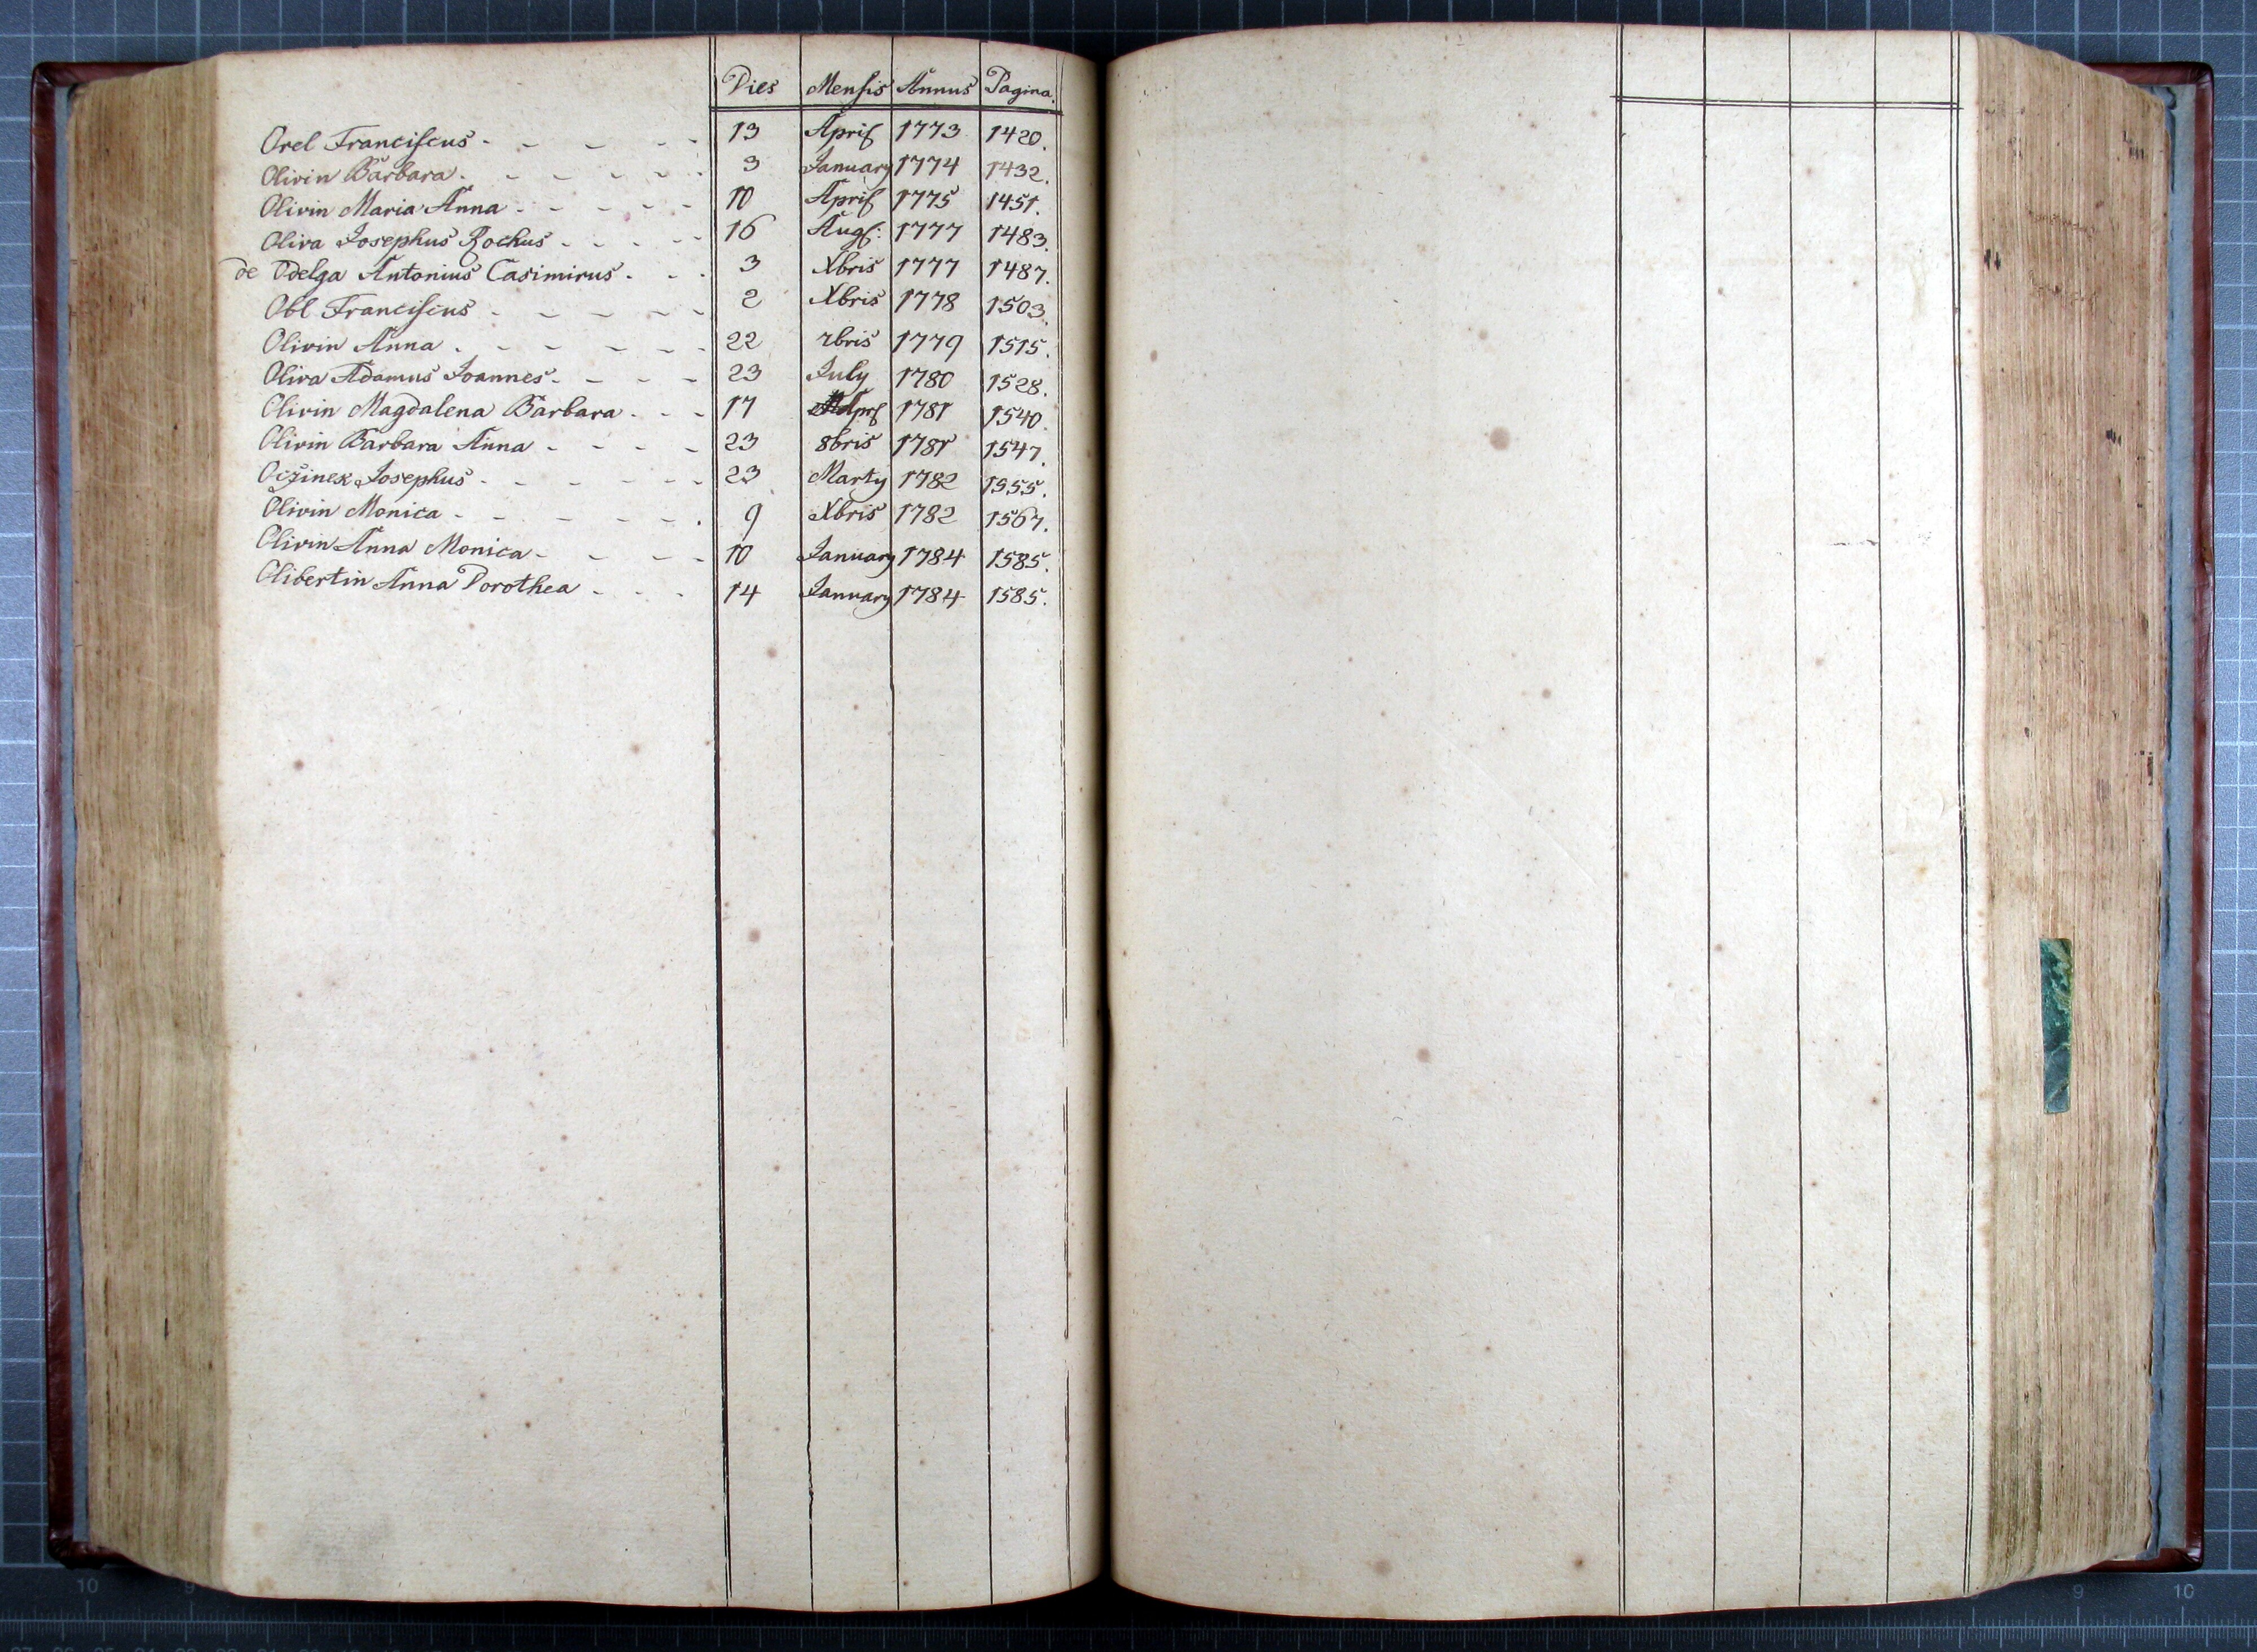 Dies Mensis Annus Pagina.
Orel Franciscus - - - - - 13 April 1773 1420.
Olivin Barbara. - - - - - 3 January 1774 1432.
Olivin Maria Anna - - - - - 10 April 1775 1451.
Oliva Josephus Rochus - - - - - 16 Aug: 1777 1483.
de Odelga Antonius Casimirus. - - 3 Xbris 1777 1487.
Obl Franciscus - - - - - 2 Xbris 1778 1503.
Olivin Anna - - - - - - 22 7bris 1779 1515.
Oliva Adamus Joannes. - - - - 23 July 1780 1528.
Olivin Magdalena Barbara. - - 17 1781 1540.
Olivin Barbara Anna - - - - 23 8bris 1781 1547.
Oczinek Josephus - - - - - - 23 Marty 1782 1555.
Olivin Monica - - - - - - 9 Xbris 1782 1567.
Olivin Anna Monica - - - - 10 January 1784 1585.
Olibertin Anna Dorothea - - - 14 January 1784 1585.